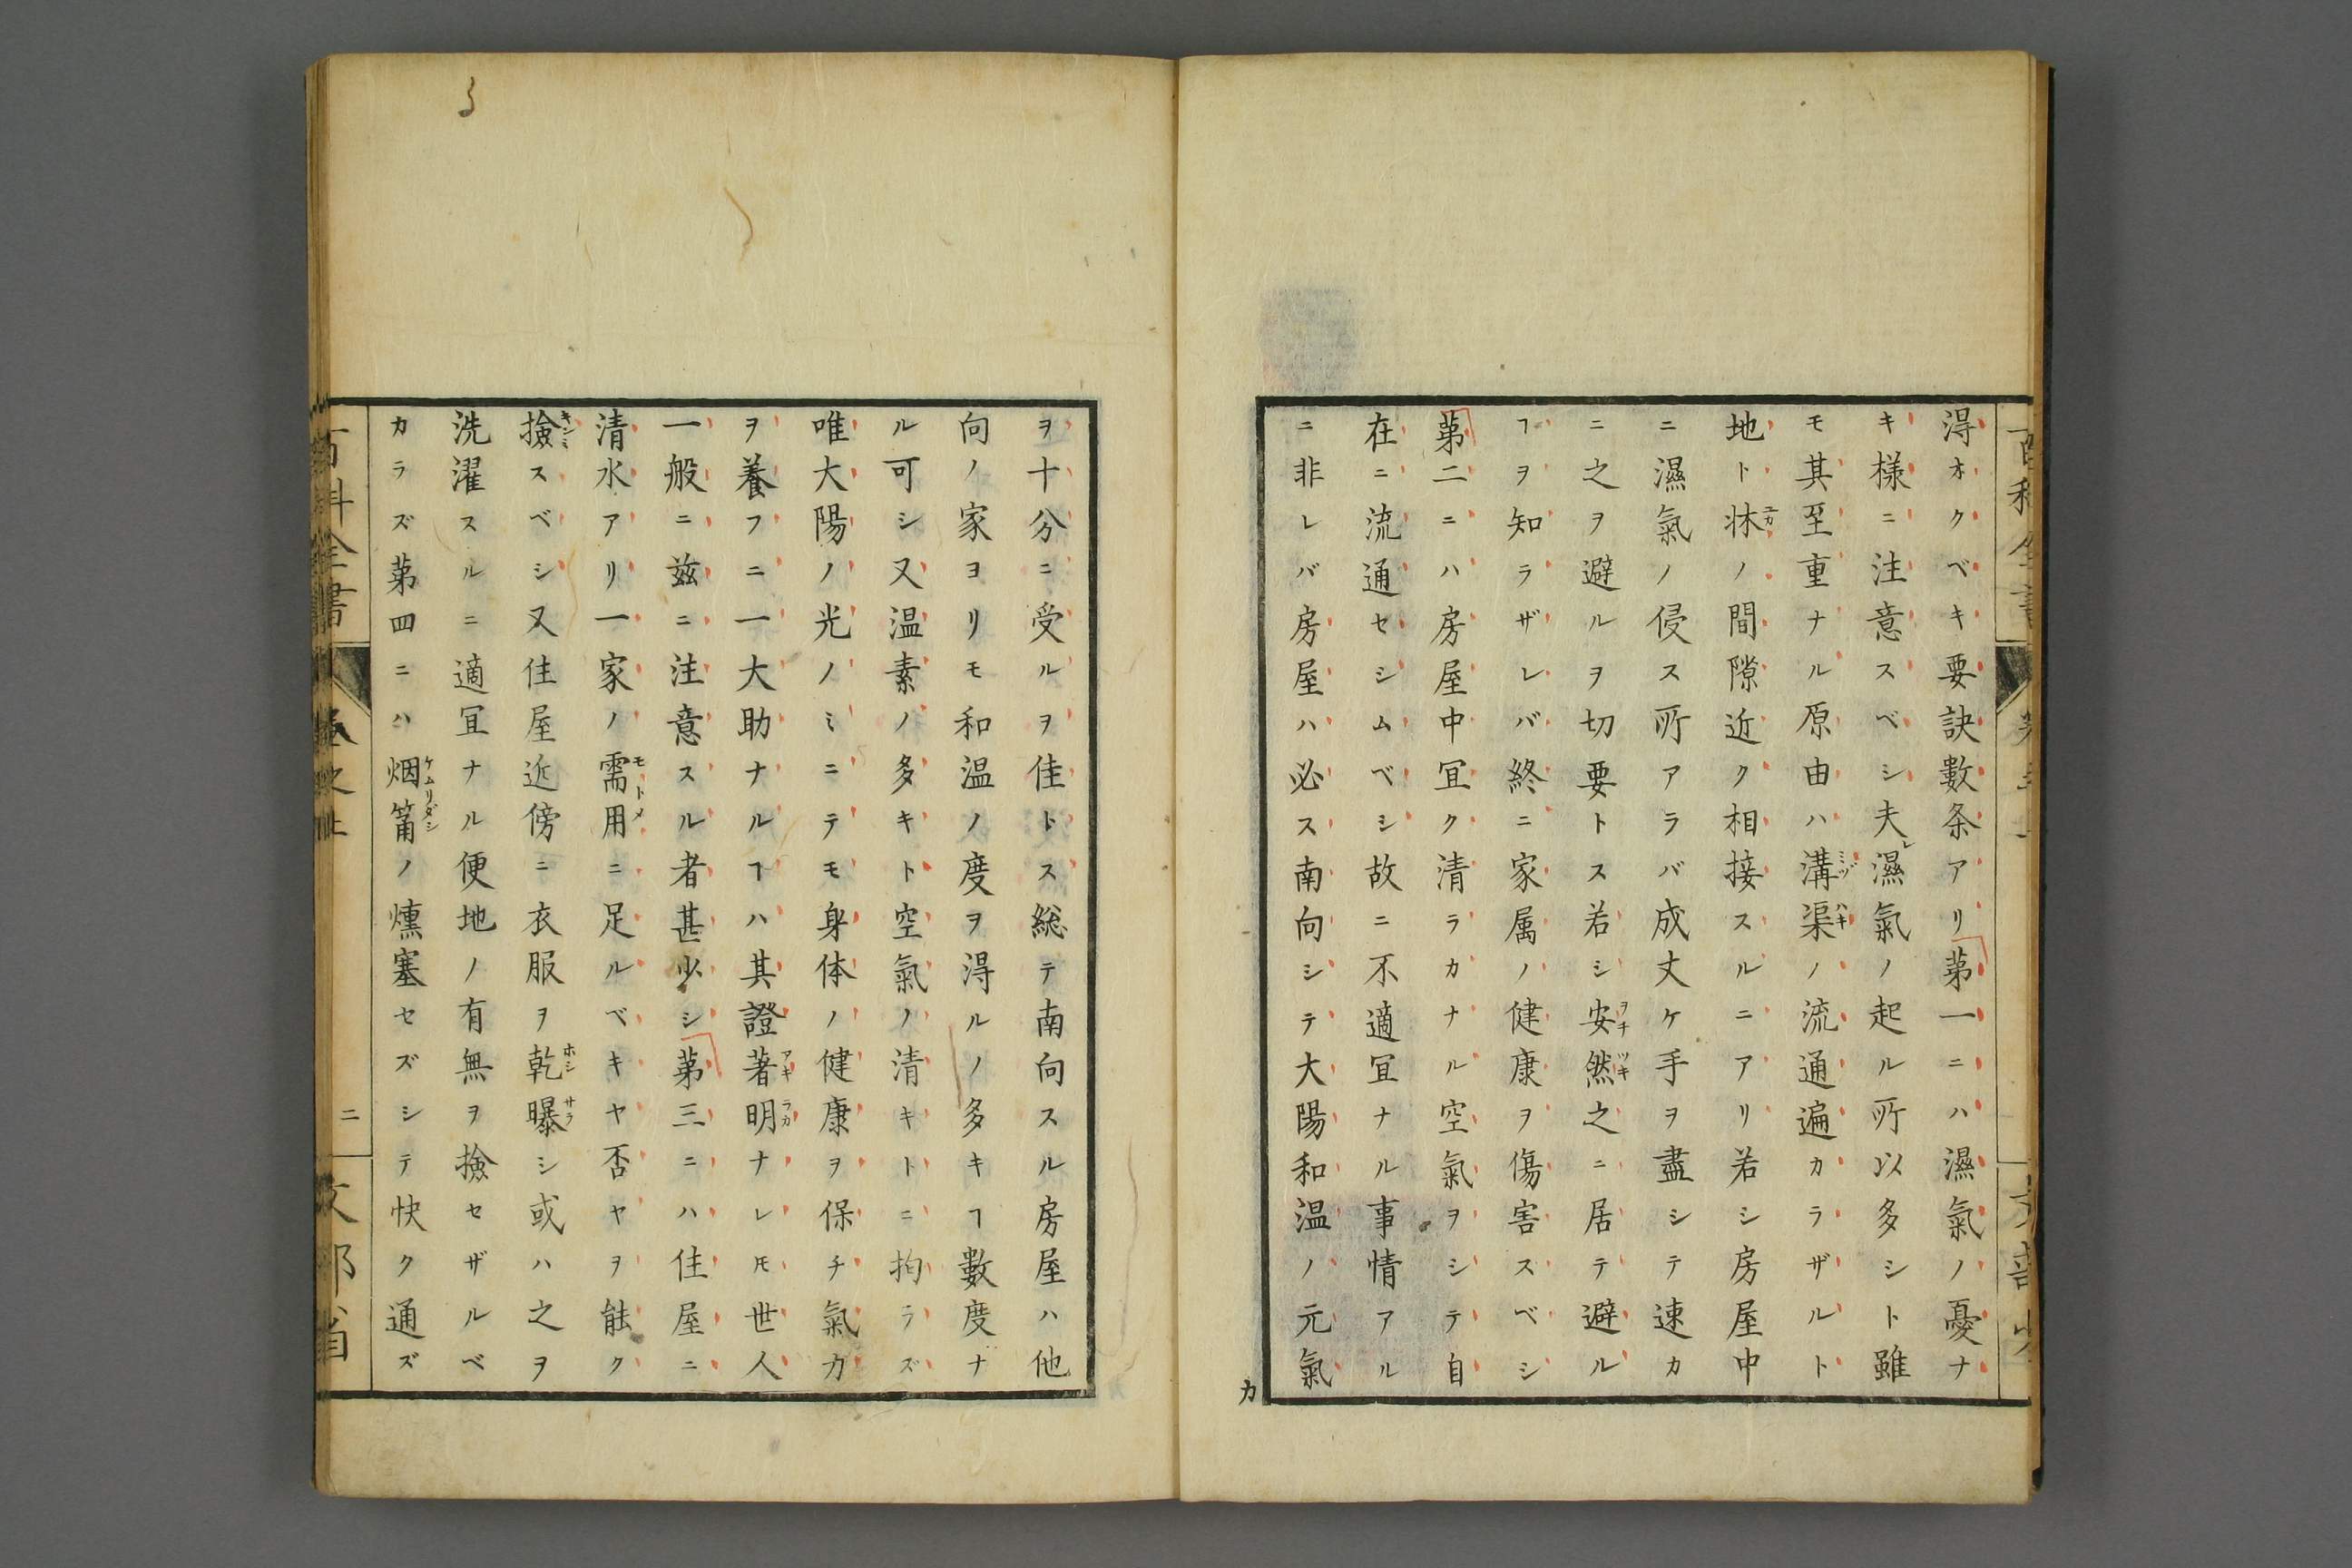 得オクベキ要訣數条アリ第一ニハ濕氣ノ憂ナ
キ様ニ注意スベシ夫レ濕氣ノ起ル所以多シト雖
モ其至重ナル原由ハ溝渠ノ流通遍カラザルト
地ト牀ノ間隙近ク相接スルニアリ若シ房屋中
ニ濕氣ノ侵ス所アラバ成丈ケ手ヲ盡シテ速カ
ニ之ヲ避ルヲ切要トス若シ安然之ニ居テ避ル
ヿヲ知ラザレバ終ニ家属ノ健康ヲ傷害スベシ
第二ニハ房屋中冝ク清ラカナル空氣ヲシテ自
在ニ流通セシムベシ故ニ不適冝ナル事情アル
ニ非レバ房屋ハ必ス南向シテ大陽和温ノ元氣
カ
ヲ十分ニ受ルヲ佳トス総テ南向スル房屋ハ他
向ノ家ヨリモ和温ノ度ヲ得ルノ多キヿ數度ナ
ル可シ又温素ノ多キト空氣ノ清キトニ拘ラズ
唯大陽ノ光ノミニテモ身体ノ健康ヲ保チ氣力
ヲ養フニ一大助ナルヿハ其證著明ナレ𪜈世人
一般ニ兹ニ注意スル者甚少シ第三ニハ住屋ニ
清水アリ一家ノ需用ニ足ルベキヤ否ヤヲ能ク
撿スベシ又住屋近傍ニ衣服ヲ乾曝シ或ハ之ヲ
洗濯スルニ適冝ナル便地ノ有無ヲ撿セザルベ
カラズ第四ニハ烟筩ノ燻塞セズシテ快ク通ズ
百科全書 卷之上 二 文部省